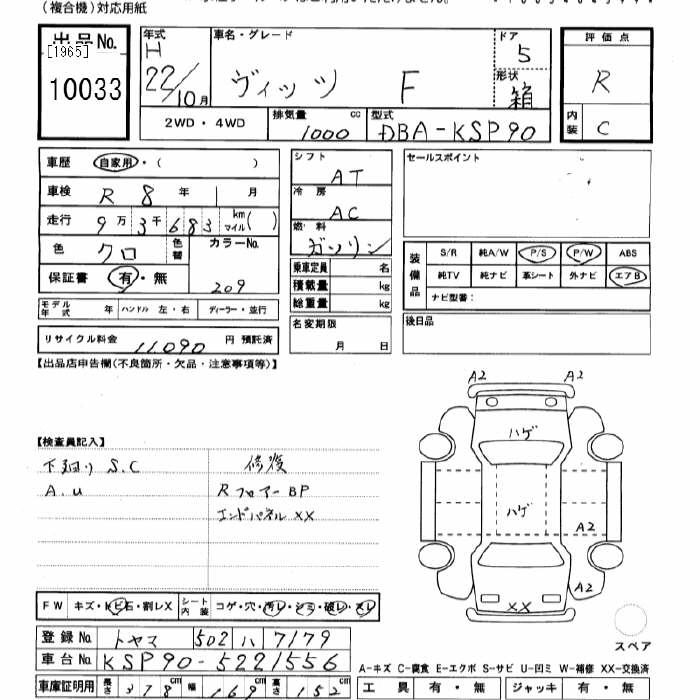 (複合機)対応用紙
出品No. [1965] 10033
年式 H 22/10月
車名・グレード ヴィッツ F
ドア 5
形状 箱
評価点 R
内装 C
2WD・4WD
排気量 1000 cc
型式 DBA-KSP90
車歴 自家用・( )
車検 R 8年 1月
走行 9万3千683 kmマイル( )
色 クロ 色替
カラーNo. 209
保証書 有・無
モデル年式 年 ハンドル 左・右 ディーラー・並行
リサイクル料金 11,090 円 預託済
シフト AT
冷房 AC
燃料 ガソリン
乗車定員 名
積載量 kg
総重量 kg
名変期限 月 日
セールスポイント
装備品 S/R 純A/W P/S P/W ABS
純TV 純ナビ 革シート 外ナビ エアB
ナビ型番:
後日品
【出品店申告欄(不良箇所・欠品・注意事項等)】
A2 A2
ハゲ
ハゲ
A2
A2
XX
スペア
【検査員記入】
下廻り S.C 修復
A.U Rフロアー BP
エンドパネル XX
FW キズ・トビ石・割レX シート内装 コゲ・穴・汚レ・シミ・破レ・スレ
登録No. トヤマ 502 ハ 7179
車台No. KSP90-5221556
車庫証明用 長さ 378cm 幅 169cm 高さ 152cm
A-キズ C-腐食 E-エクボ S-サビ U-凹ミ W-補修 XX-交換済
工具 有・無 ジャッキ 有・無